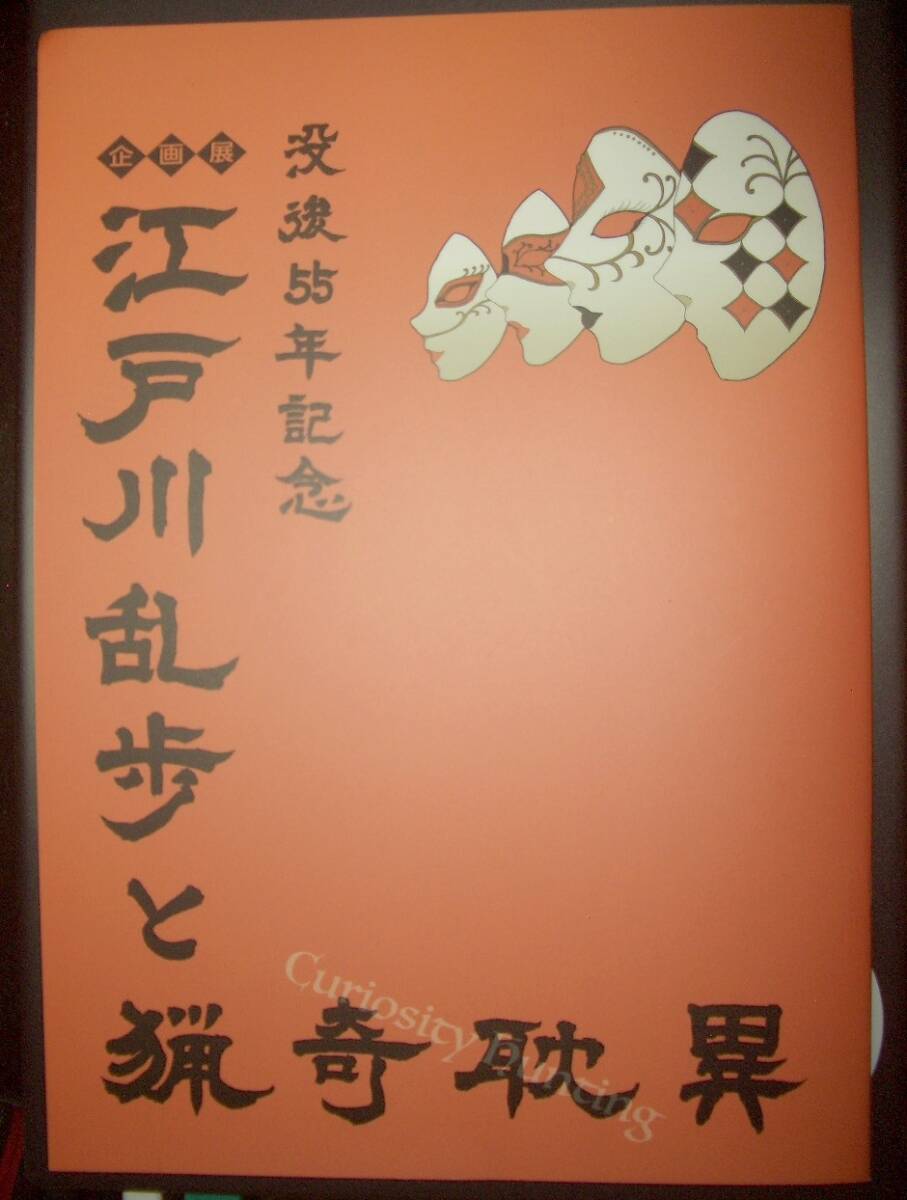 没後55年記念
企画展
江戸川乱歩と
猟奇耽異
Curiosity hunting